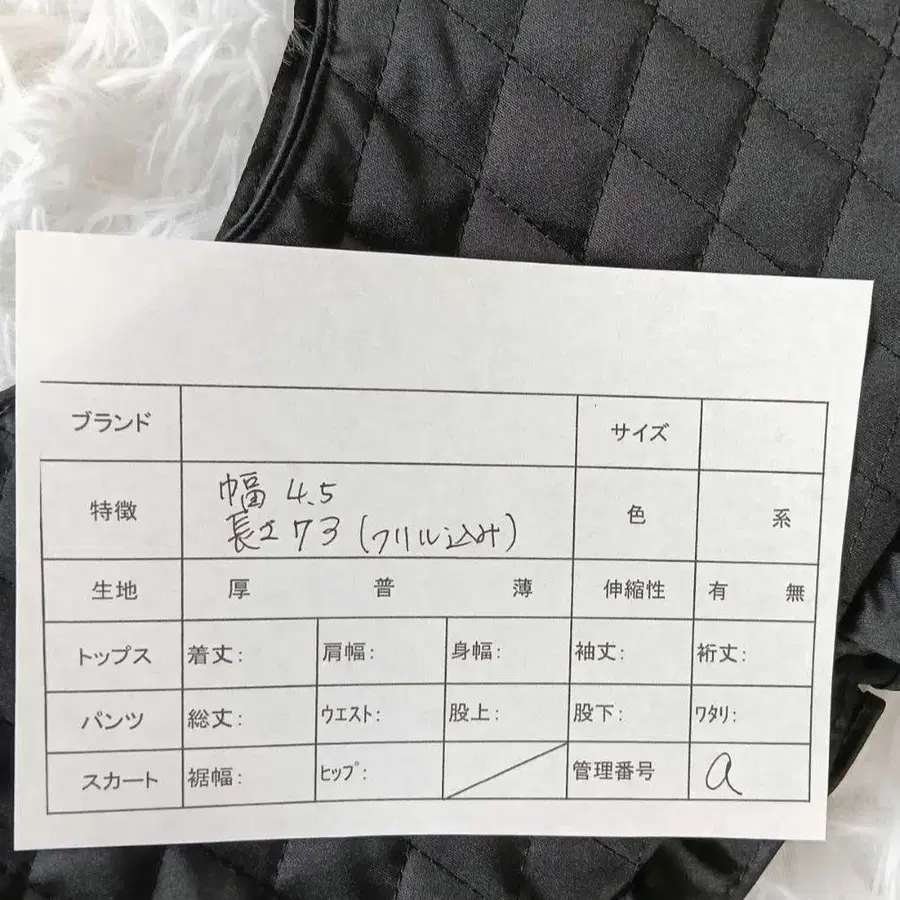 ブランド サイズ
特徴 幅 4.5 色 系
長さ 73 (フリル込み)
生地 厚 普 薄 伸縮性 有 無
トップス 着丈: 肩幅: 身幅: 袖丈: 裄丈:
パンツ 総丈: ウエスト: 股上: 股下: ワタリ:
スカート 裾幅: ヒップ: 管理番号 a